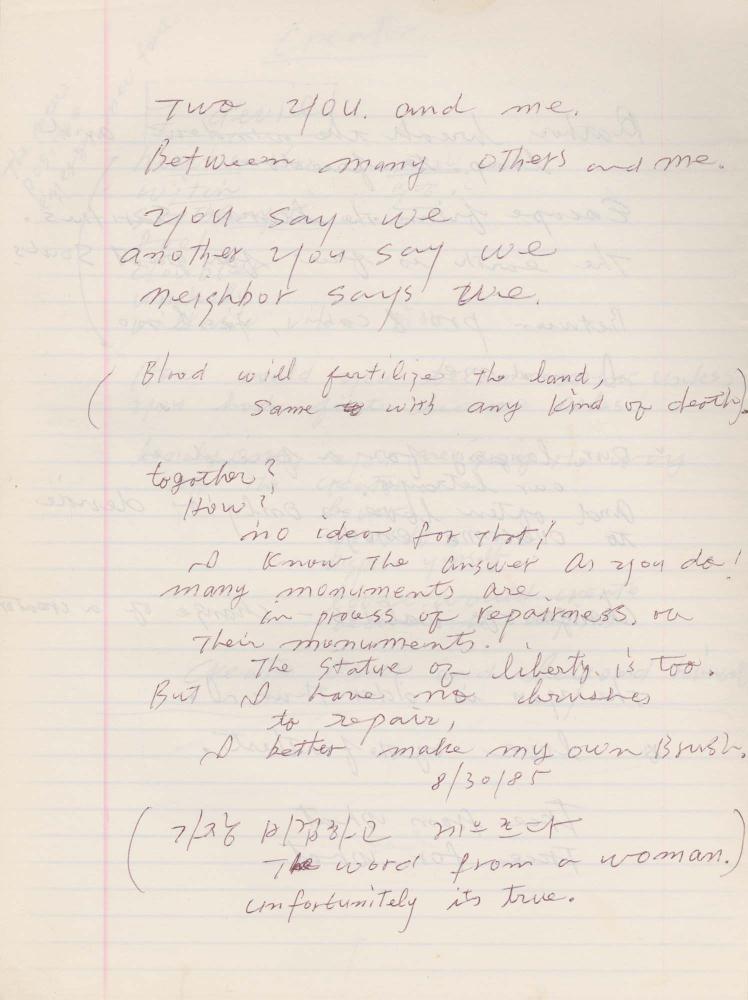 Two you. and me.
Between many others and me.
you say we
another you say we
neighbor says we.
(Blood will fertilize the land,
same with any kind of death)
together?
How?
no idea for that!
I know the answer as you do!
many monuments are
in process of repairness. on
Their monuments.
The Statue of liberty. is too.
But I have no
to repair,
I better make my own Brush.
8/30/85
(가장 비겁하고
The word from a woman.)
unfortunitely its true.